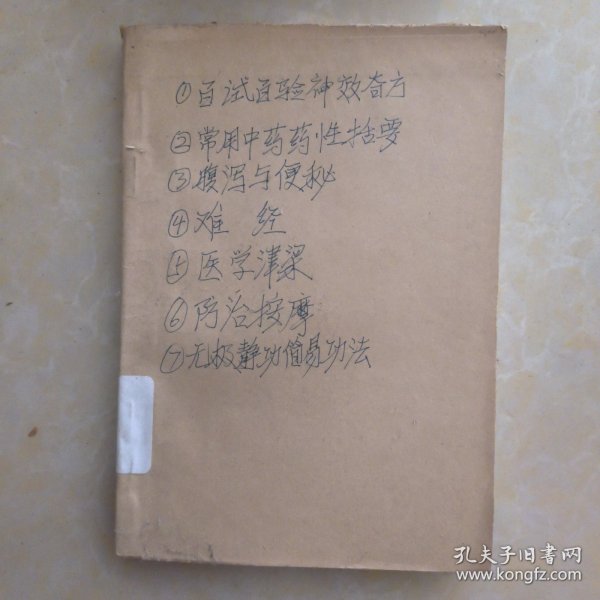 ①百试百验神效奇方
②常用中药药性括要
③腹泻与便秘
④难 经
⑤医学津梁
⑥防治按摩
⑦无极静功简易功法
孔夫子旧书网
www.kongfz.com